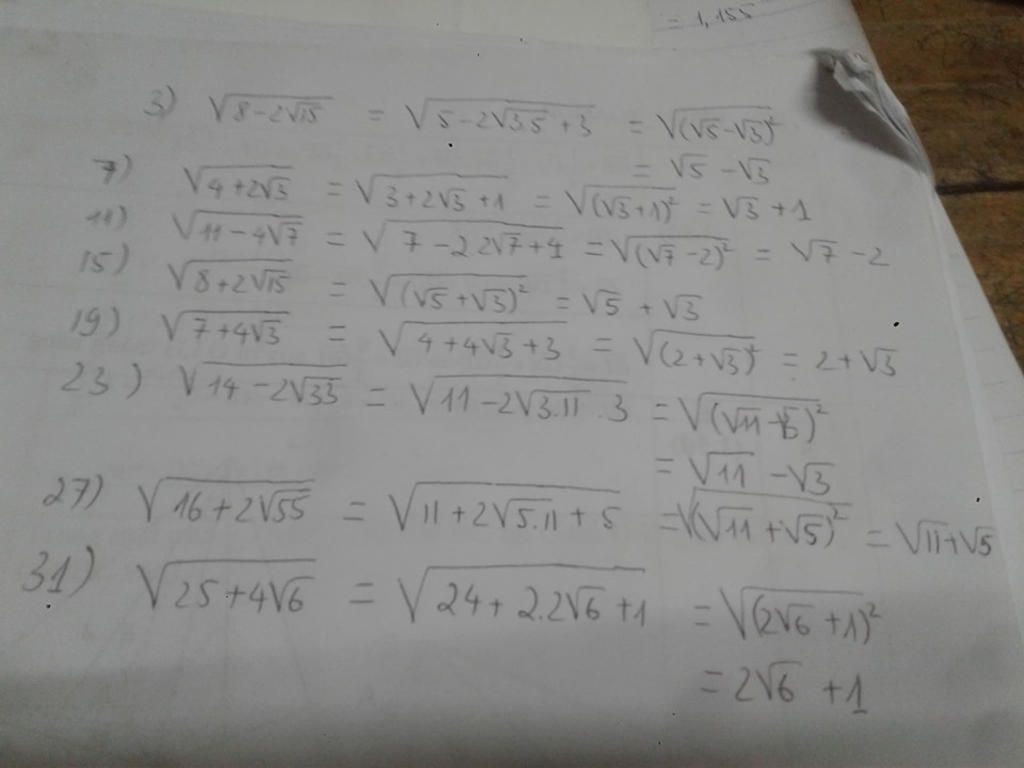 = 1,155
3) √(8-2√15) = √(5-2√(3.5)+3) = √((√5-√3)²)
= √5 -√3
7) √(4+2√3) = √(3+2√3+1) = √((√3+1)²) = √3 +1
11) √(11-4√7) = √(7-2.2√7+4) = √((√7-2)²) = √7 -2
15) √(8+2√15) = √((√5+√3)²) = √5 + √3
19) √(7+4√3) = √(4+4√3+3) = √((2+√3)²) = 2+√3
23) √(14-2√33) = √(11-2√(3.11) . 3) = √((√11-√3)²)
= √11 -√3
27) √(16+2√55) = √(11+2√(5.11)+5) = √((√11+√5)²) = √11+√5
31) √(25+4√6) = √(24+2.2√6+1) = √((2√6+1)²)
= 2√6 +1